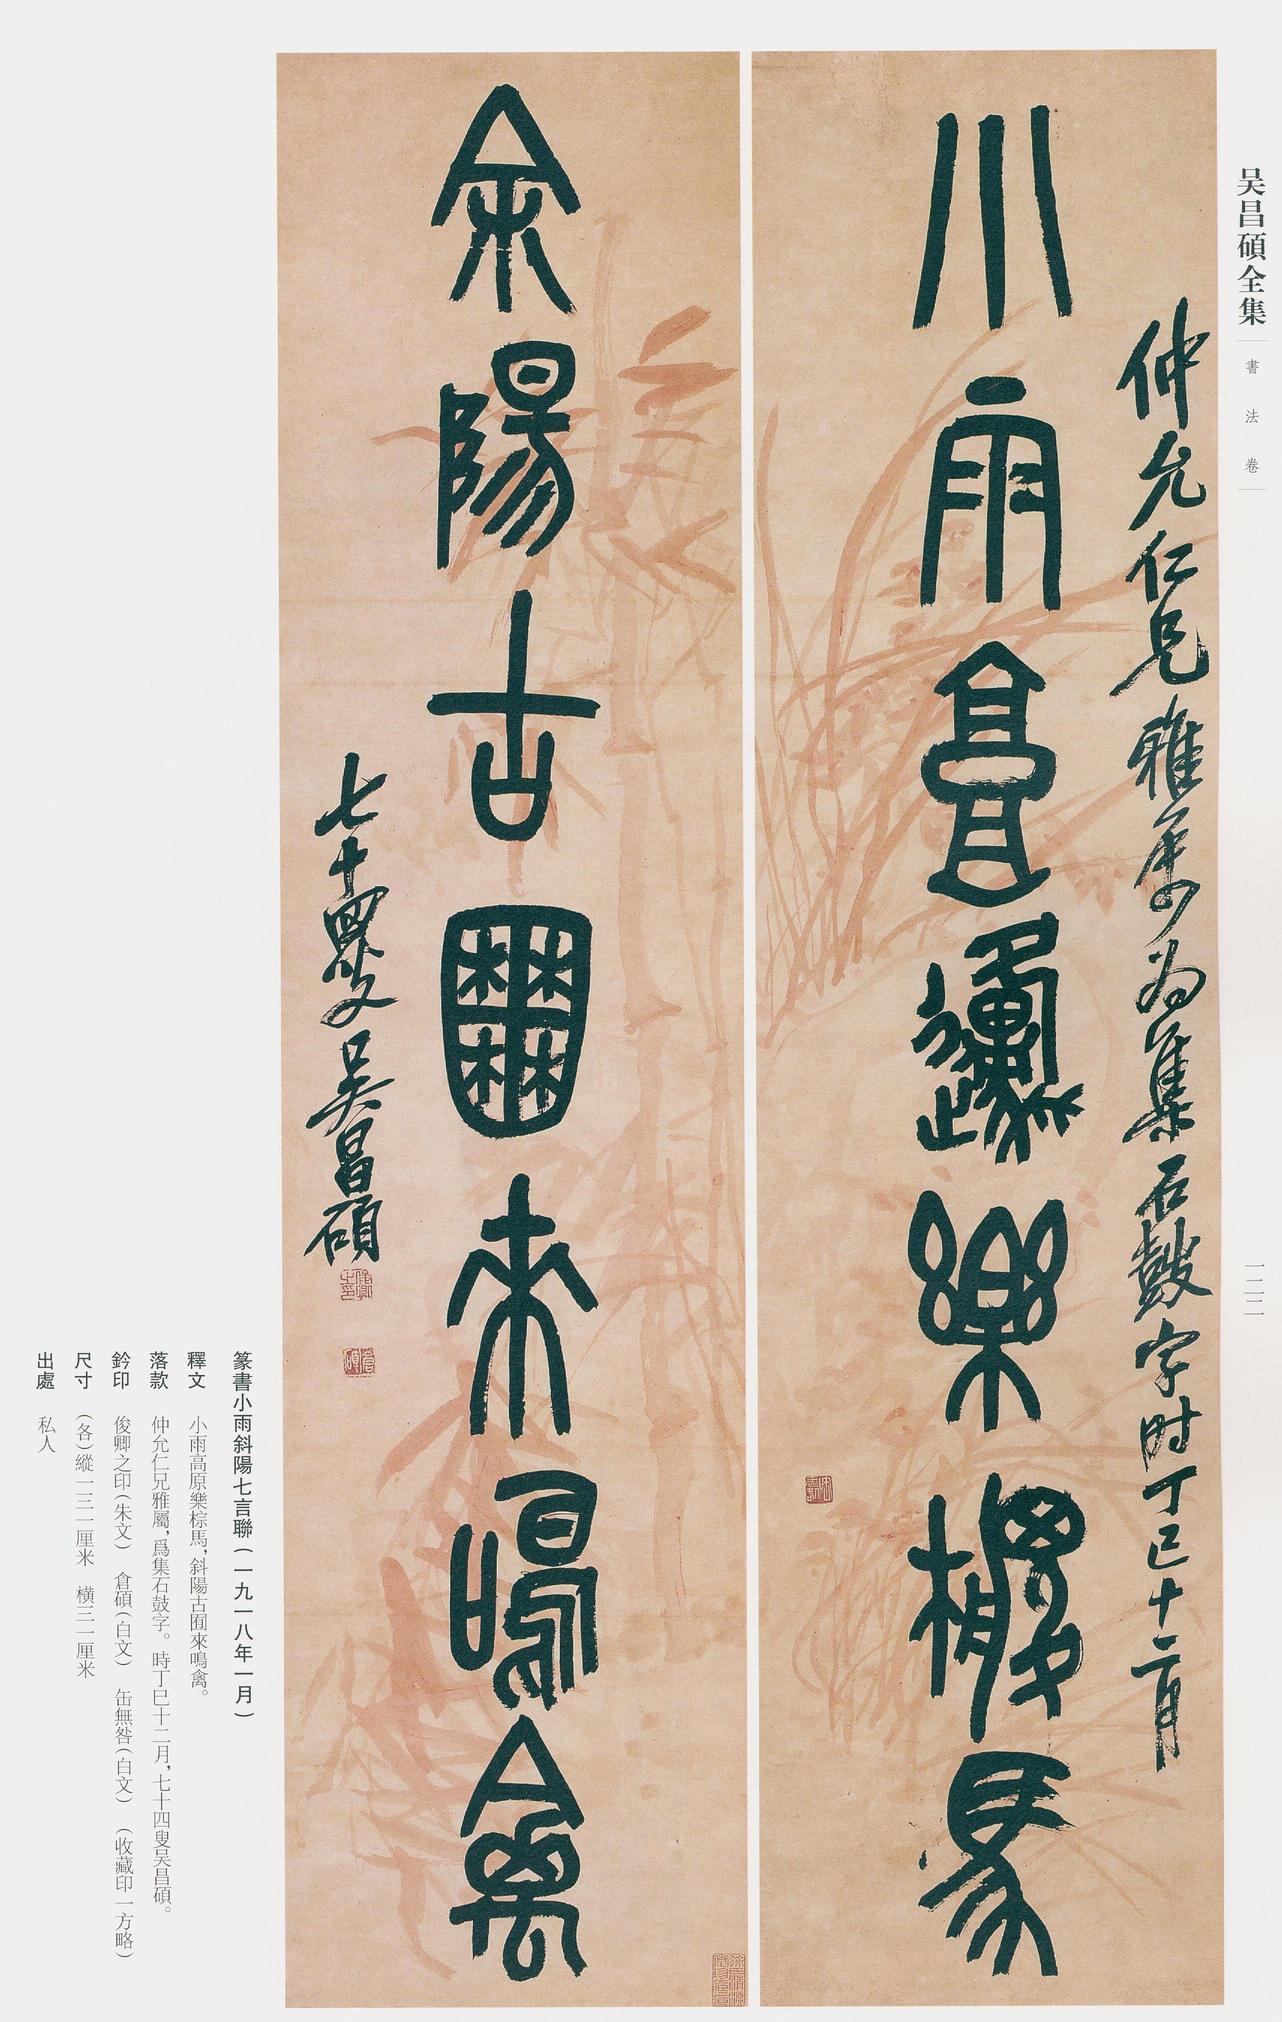 吴昌碩全集
書法卷
一二二
仲允仁兄雅屬為集石鼓字時丁巳十二月
小雨高原樂椶馬
斜陽古囿來鳴禽
七十四叟吴昌碩
篆書小雨斜陽七言聯（一九一八年一月）
釋文　小雨高原樂棕馬，斜陽古囿來鳴禽。
落款　仲允仁兄雅屬，爲集石鼓字。時丁巳十二月，七十四叟吴昌碩。
鈐印　俊卿之印（朱文）　倉碩（白文）　缶無咎（白文）　（收藏印一方略）
尺寸　（各）縱一三一厘米　横三一厘米
出處　私人